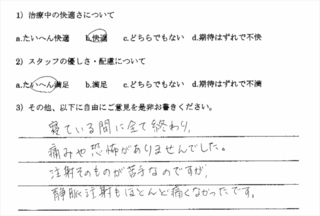 1）治療中の快適さについて
a.たいへん快適 b.快適 c.どちらでもない d.期待はずれで不快
2）スタッフの優しさ・配慮について
a.たいへん満足 b.満足 c.どちらでもない d.期待はずれで不満
3）その他、以下に自由にご意見を是非お書きください。
寝ている間に全て終わり、
痛みや恐怖がありませんでした。
注射そのものが苦手なのですが、
静脈注射もほとんど痛くなかったです。